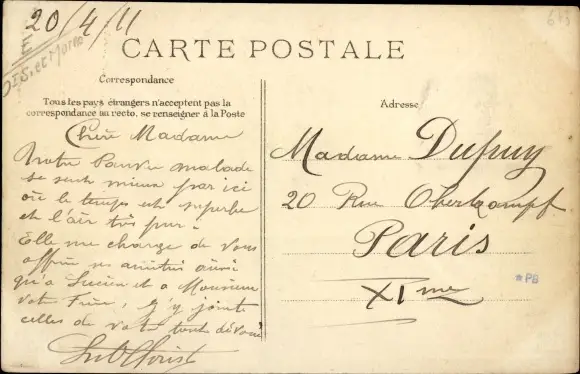 20/4/11
CARTE POSTALE
Correspondance
Tous les pays étrangers n'acceptent pas la
correspondance au recto, se renseigner à la Poste
Adresse
Chère Madame
Notre Pauvre malade
se sent mieux par ici
où le temps est superbe
et l'air très pur.
Elle me charge de vous
offrir ses amitiés ainsi
qu'à Lucien et a Monsieur
votre Frère, j'y joints
celles de votre toute dévouée
Madame Dupuy
20 Rue Oberkampf
Paris
XIme
*PB